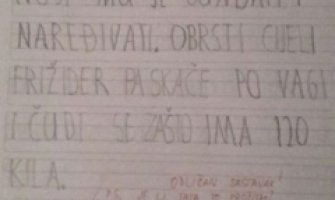 NAREĐIVATI. OBRSTI CIJELI
FRIŽIDER PA SKAČE PO VAGI
I ČUDI SE ZAŠTO IMA 120
KILA.
ODLIČAN SASTAVAK!